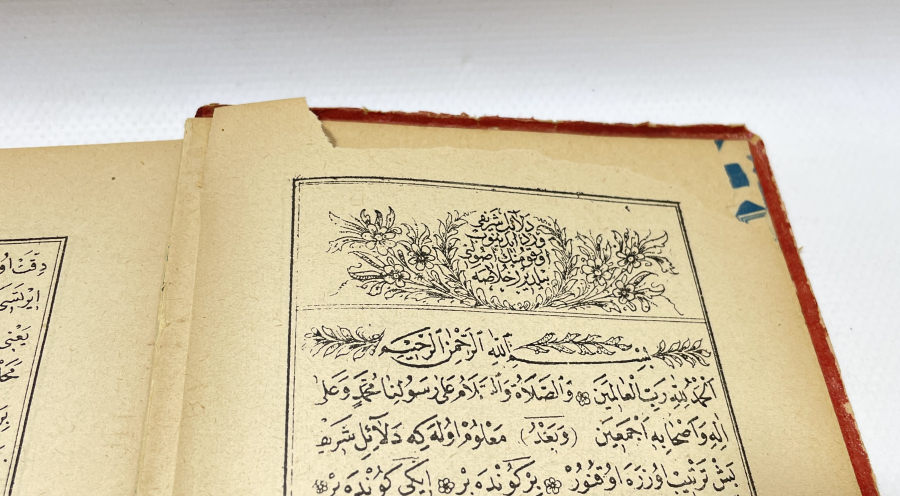 ٢
دلائل شریف
ورد ایدینوب
اوقومنك اصولی
بلدیرر خلاصه
بِسْمِ اللهِ الرَّحْمٰنِ الرَّحِيْمِ
اَلْحَمْدُ لِلّٰهِ رَبِّ الْعَالَمِينَ وَالصَّلَاةُ وَالسَّلَامُ عَلٰى رَسُولِنَا مُحَمَّدٍ وَعَلٰى
اٰلِهِ وَاَصْحَابِهِ اَجْمَعِينَ (وَبَعْدُ) مَعْلُومْ اُولَه كِه دَلَائِلِ شَرِيفْ
بَشْ تَرْتِيبْ اُوزَرَه اُوقُنُورْ بِرْ كُونْدَه بِرْ اِيكِى كُونْدَه بِرْ
دِقَّتْ
يَعْنِى